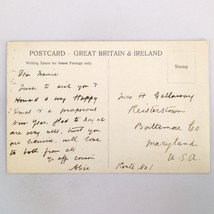 POSTCARD - GREAT BRITAIN & IRELAND
Writing Space for Inland Postage only.
Stamp
Dear
Just to wish you &
Howard a very Happy
Xmas & a prosperous
New Year. Glad to say we
are very well, trust you
are the same, with love
to both from all
Yr aff cousin
Alice
Mrs H Galloway
Reisterstown
Baltimore Co
Maryland
U.S.A
Route No 1